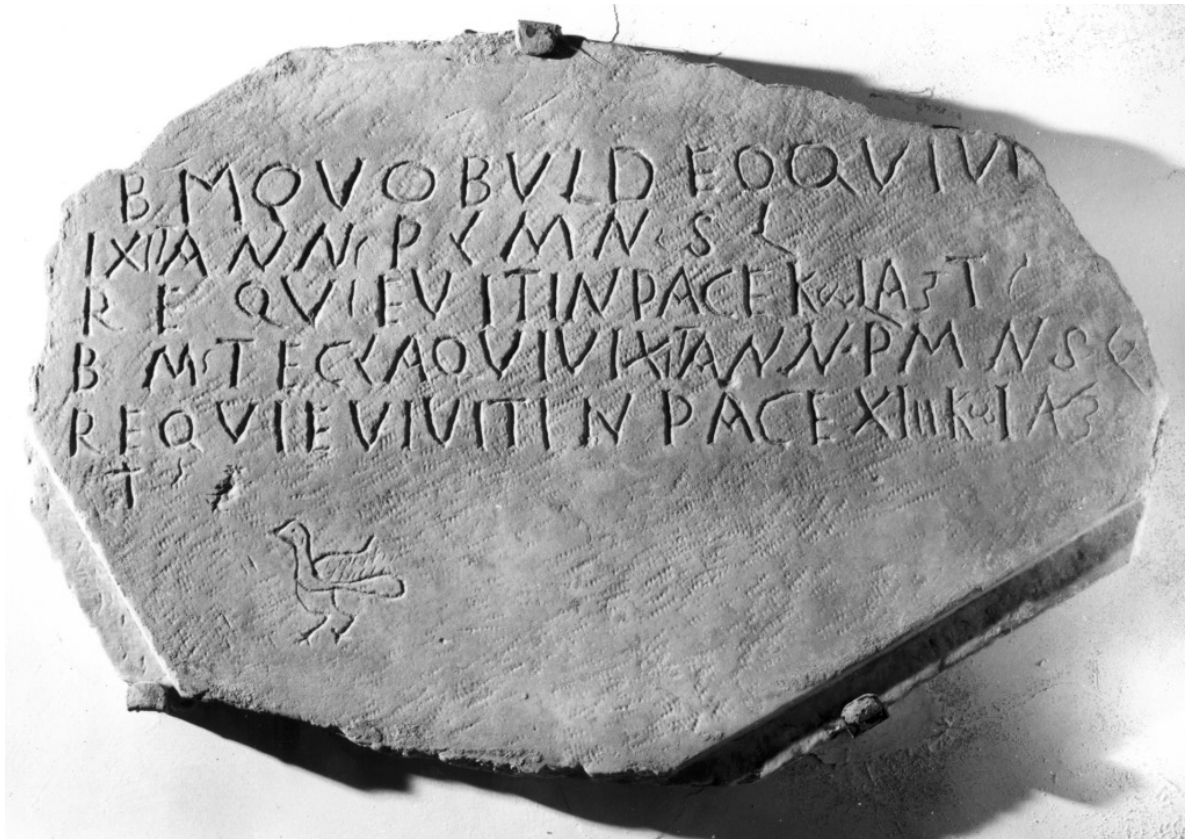 B M QVOBVLDEO QVI VI
IXIT ANNS P L MNS L
REQVIEVIT IN PACE K IAS T
B MS TECLA QVI VIXIT ANN P MNS
REQVIEVIVIT IN PACE XIIII K IAS
T S